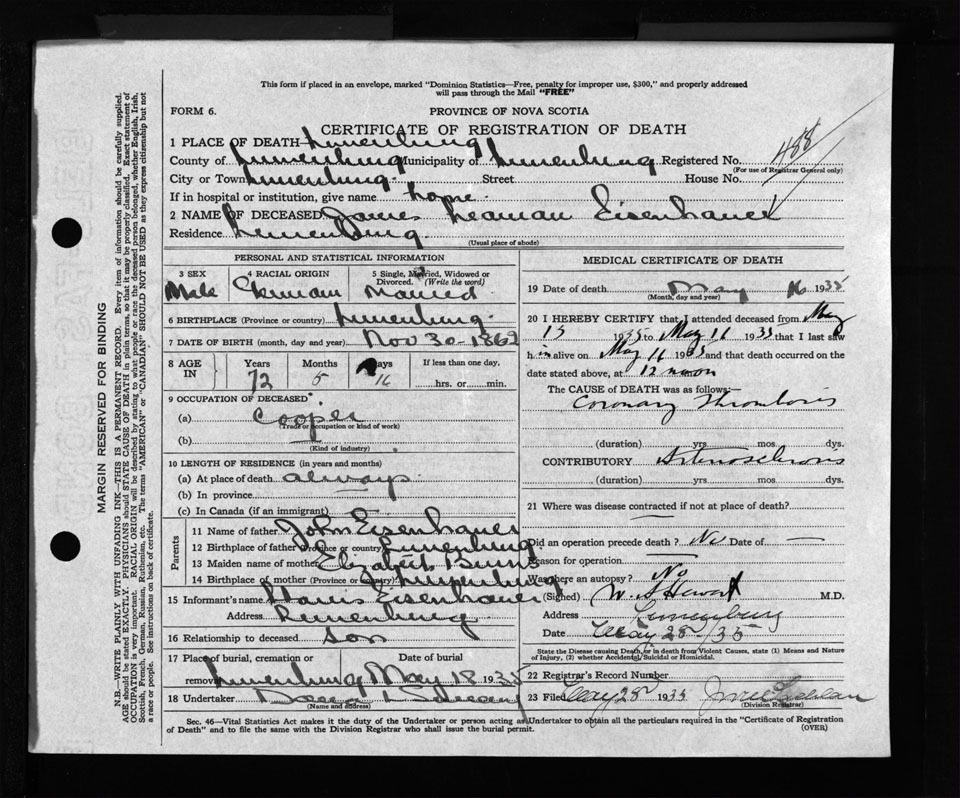 This form if placed in an envelope, marked "Dominion Statistics—Free, penalty for improper use, $300," and properly addressed
will pass through the Mail "FREE"
FORM 6.
PROVINCE OF NOVA SCOTIA
CERTIFICATE OF REGISTRATION OF DEATH
1 PLACE OF DEATH Lunenburg
County of Lunenburg Municipality of Lunenburg Registered No. 488
(For use of Registrar General only)
City or Town Lunenburg. Street House No.
If in hospital or institution, give name home.
2 NAME OF DECEASED James Leaman Eisenhauer
Residence Lunenburg.
(Usual place of abode)
PERSONAL AND STATISTICAL INFORMATION
3 SEX 4 RACIAL ORIGIN 5 Single, Married, Widowed or
Divorced. (Write the word)
Male German Married
6 BIRTHPLACE (Province or country) Lunenburg.
7 DATE OF BIRTH (month, day and year) Nov 30-1862
8 AGE IN Years Months Days If less than one day,
72 5 16 hrs. or min.
9 OCCUPATION OF DECEASED
(a) Cooper
(Trade or occupation or kind of work)
(b)
(Kind of industry)
10 LENGTH OF RESIDENCE (in years and months)
(a) At place of death always
(b) In province
(c) In Canada (if an immigrant)
Parents
11 Name of father John Eisenhauer
12 Birthplace of father (Province or country) Lunenburg
13 Maiden name of mother Elizabeth
14 Birthplace of mother (Province or country) Lunenburg
15 Informant's name Harris Eisenhauer
Address Lunenburg
16 Relationship to deceased son
17 Place of burial, cremation or Date of burial
removal Lunenburg May 18 1935
18 Undertaker
(Name and address)
MEDICAL CERTIFICATE OF DEATH
19 Date of death May 16 1935
(Month, day and year)
20 I HEREBY CERTIFY that I attended deceased from May
13 1935 to May 16 1935 that I last saw
h im alive on May 16 1935 and that death occurred on the
date stated above, at 12 noon
The CAUSE of DEATH was as follows:
Coronary Thrombosis
(duration) yrs. mos. dys.
CONTRIBUTORY Arteriosclerosis
(duration) yrs. mos. dys.
21 Where was disease contracted if not at place of death?
Did an operation precede death? No Date of —
Reason for operation —
Was there an autopsy? No
(Signed) M.D.
Address Lunenburg
Date May 28-/35
State the Disease causing Death, or in death from Violent Causes, state (1) Means and Nature
of Injury, (2) whether Accidental, Suicidal or Homicidal.
22 Registrar's Record Number
23 Filed May 28 1935
(Division Registrar)
Sec. 46—Vital Statistics Act makes it the duty of the Undertaker or person acting as Undertaker to obtain all the particulars required in the "Certificate of Registration
of Death" and to file the same with the Division Registrar who shall issue the burial permit. (OVER)
MARGIN RESERVED FOR BINDING
N.B.—WRITE PLAINLY WITH UNFADING INK—THIS IS A PERMANENT RECORD. Every item of information should be carefully supplied.
AGE should be stated EXACTLY. PHYSICIANS should STATE CAUSE OF DEATH in plain terms, so that it may be properly classified. Exact statement of
OCCUPATION is very important. RACIAL ORIGIN will be described by stating to what people or race the deceased person belonged, whether English, Irish,
Scottish, French, German, Russian, Ruthenian, etc. The terms "AMERICAN" or "CANADIAN" SHOULD NOT BE USED as they express citizenship but not
a race or people. See instructions on back of certificate.